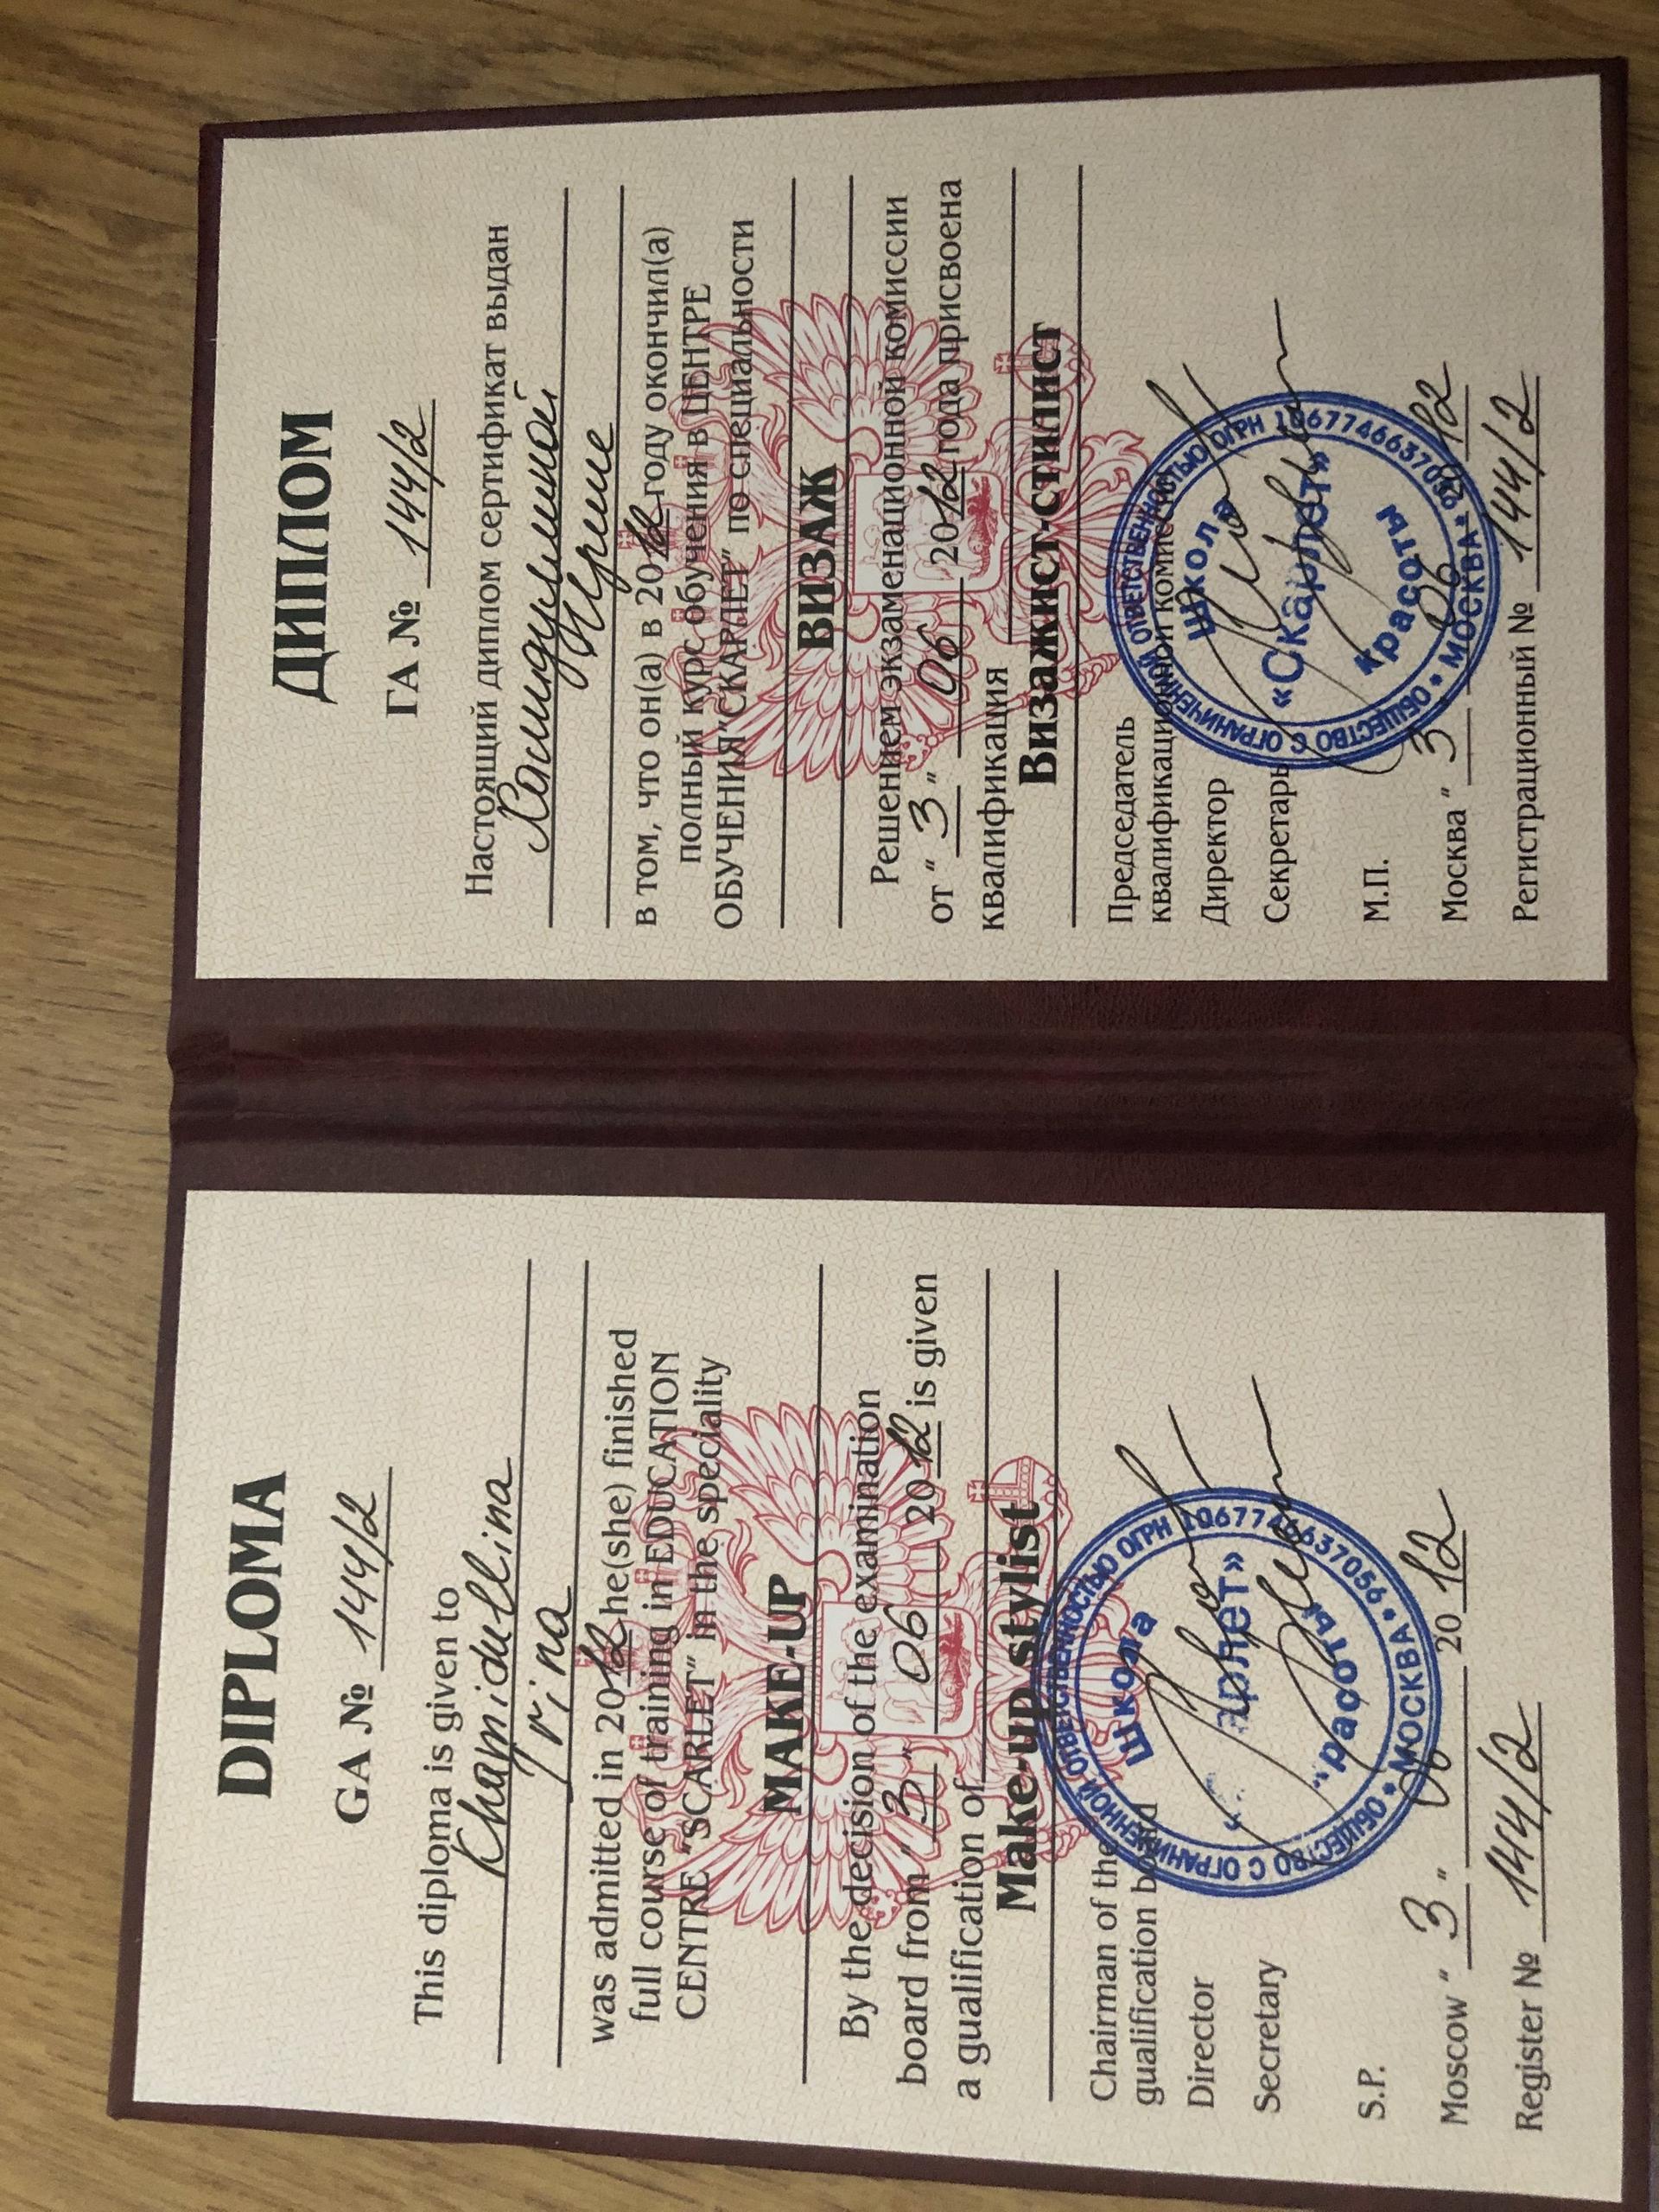 DIPLOMA
GA № 144/2
This diploma is given to
Khamidullina
Irina
was admitted in 2012 he(she) finished
full course of training in EDUCATION
CENTRE "SCARLET" in the speciality
MAKE-UP
By the decision of the examination
board from "3" 06 2012 is given
a gualification of
Make-up stylist
Chairman of the
gualification board
Director
Secretary
S.P.
Moscow "3" 06 2012
Register № 144/2
ОБЩЕСТВО С ОГРАНИЧЕННОЙ ОТВЕТСТВЕННОСТЬЮ ОГРН 1067746637056 • МОСКВА •
Школа
«Скарлет»
красоты
ДИПЛОМ
ГА № 144/2
Настоящий диплом сертификат выдан
Хамидуллиной
Ирине
в том, что он(а) в 2012 году окончил(а)
полный курс обучения в ЦЕНТРЕ
ОБУЧЕНИЯ "СКАРЛЕТ" по специальности
ВИЗАЖ
Решением экзаменационной комиссии
от "3" 06 2012 года присвоена
квалификация
Визажист-стилист
Председатель
квалификационной комиссии
Директор
Секретарь
М.П.
Москва "3" 06 2012
Регистрационный № 144/2
ОБЩЕСТВО С ОГРАНИЧЕННОЙ ОТВЕТСТВЕННОСТЬЮ ОГРН 1067746637056 • МОСКВА •
Школа
«Скарлет»
красоты